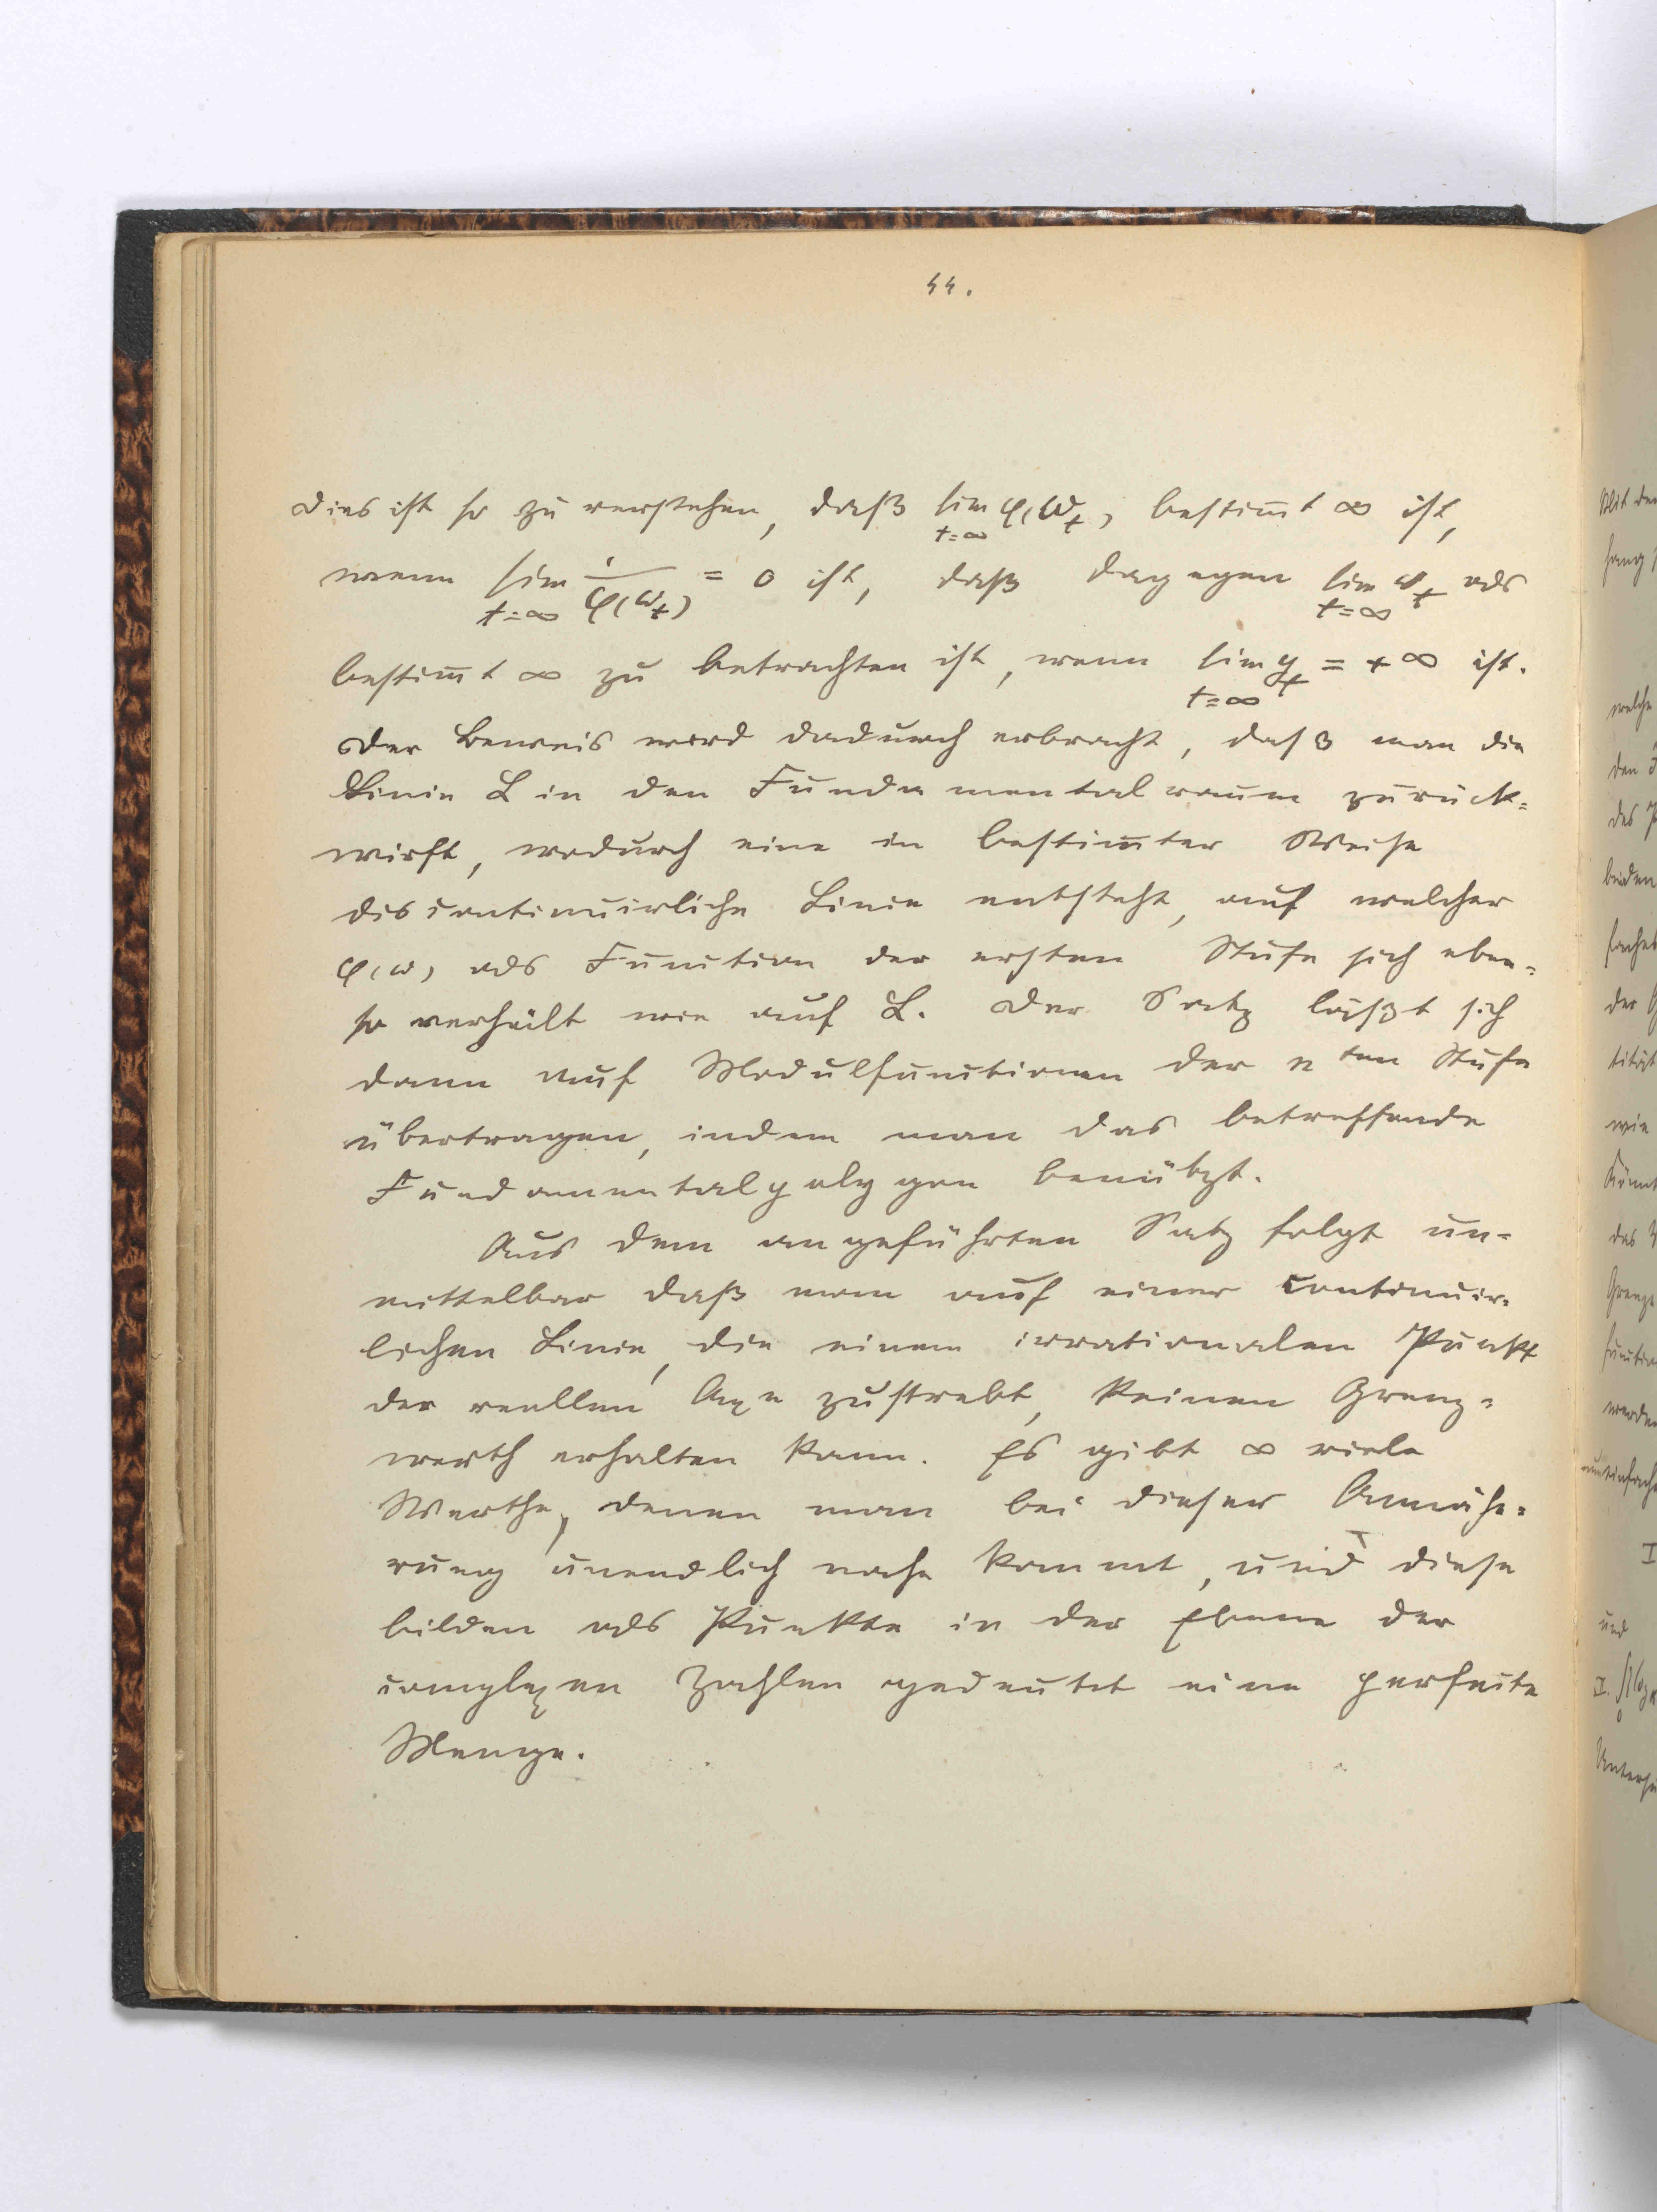 44.
Dies ist so zu verstehen, daß lim φ(ω_t) bestim̄t ∞ ist,
t=∞
wenn lim 1/φ(ω_t) = 0 ist, daß dagegen lim ω_t als
t=∞ t=∞
bestim̄t ∞ zu betrachten ist, wenn lim y_t = + ∞ ist.
t=∞
Der Beweis wird dadurch erbracht, daß man die
Linie L in den Fundamentalraum zurück=
wirft, wodurch eine in bestim̄ter Weise
discontinuirliche Linie entsteht, auf welcher
φ(ω) als Function der ersten Stufe sich eben=
so verhält wie auf L. Der Satz läßt sich
dann auf Modulfunctionen der nten Stufe
übertragen, indem man das betreffende
Fundamentalpolygon benützt.
Aus dem angeführten Satz folgt un=
mittelbar daß man auf einer continuir=
lichen Linie, die einem irrationalen Punkt
der reellen Axe zustrebt, keinen Grenz=
werth erhalten kann. Es gibt ∞ viele
Werthe, denen man bei dieser Annähe=
rung unendlich nahe kommt, und diese
bilden als Punkte in der Ebene der
complexen Zahlen gedeutet eine perfecte
Menge.